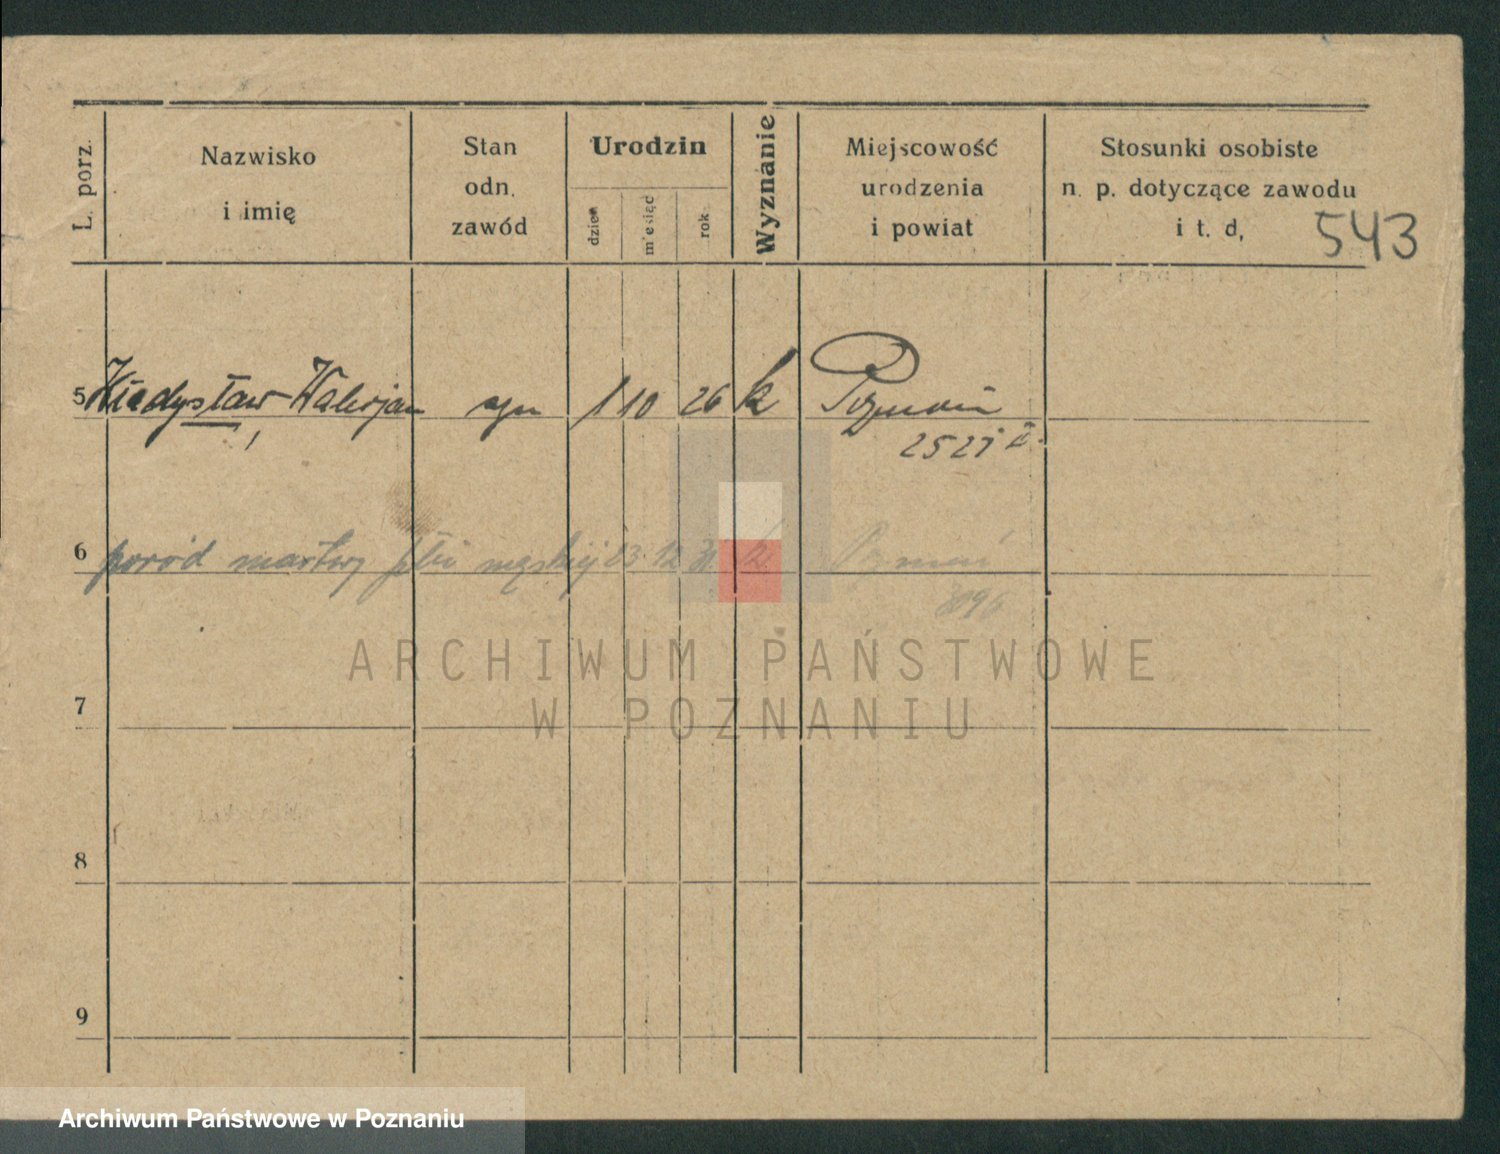 L. porz.
Nazwisko
i imię
Stan
odn.
zawód
Urodzin
dzień
miesiąc
rok
Wyznanie
Miejscowość
urodzenia
i powiat
Stosunki osobiste
n. p. dotyczące zawodu
i t. d,
543
5 Władysław Walerjan syn 1 10 26 k Poznań
2527 II.
6 poród martwy płci męskiej 13 12 31 k. Poznań
896
ARCHIWUM PAŃSTWOWE
W POZNANIU
7
8
9
Archiwum Państwowe w Poznaniu